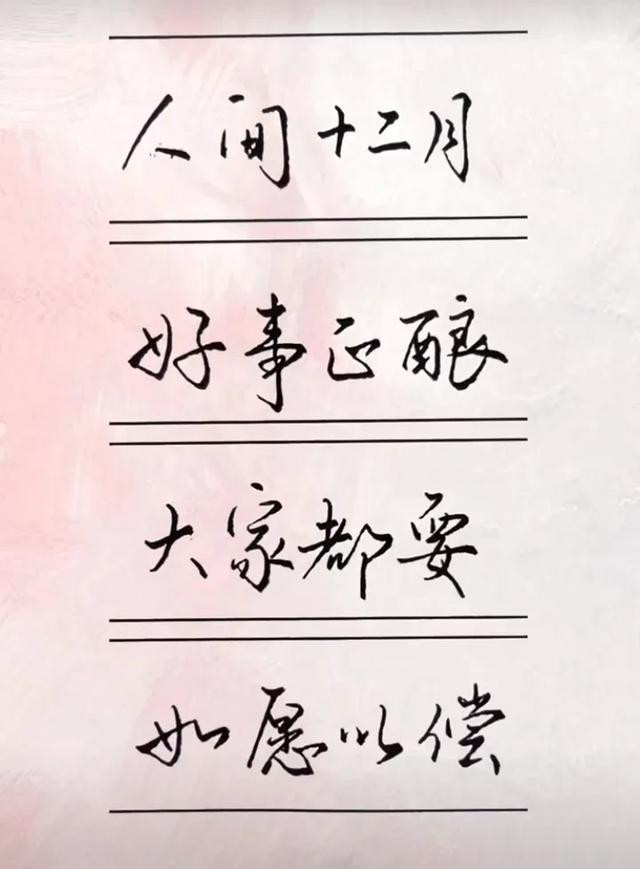 人间十二月
好事正酿
大家都要
如愿以偿